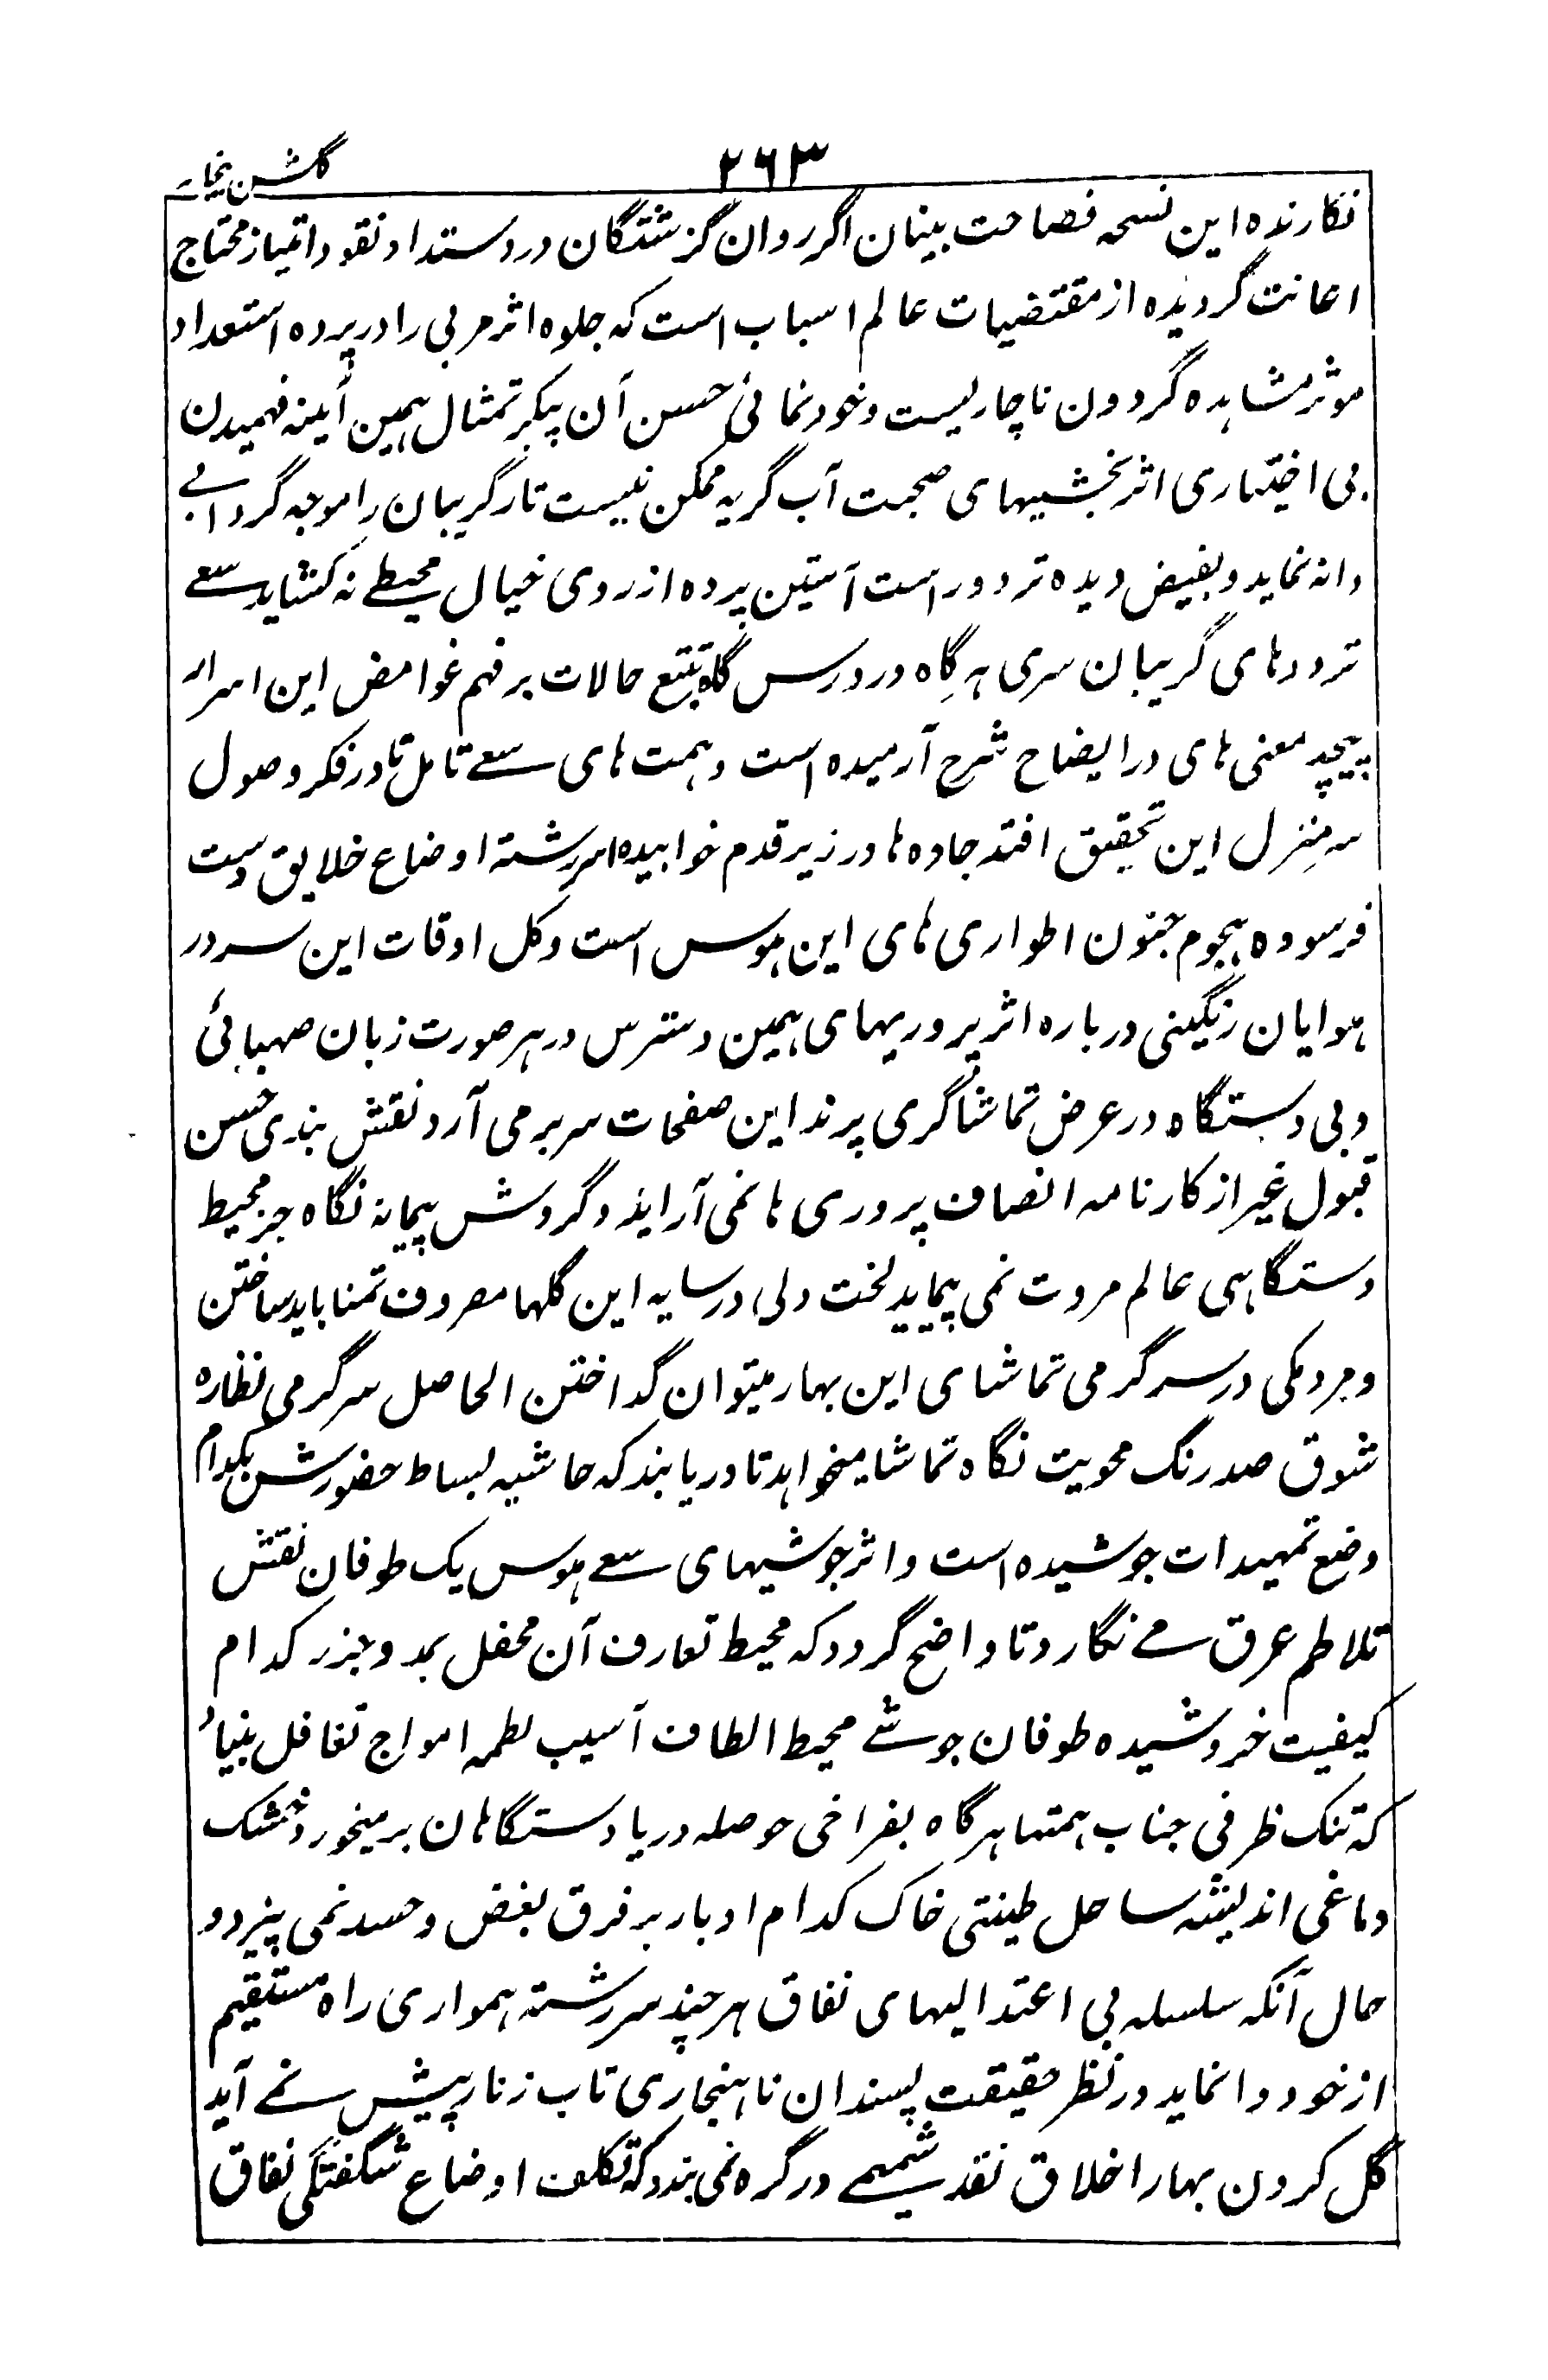 گلشن بیخار
۲۶۳
نکارنده این نسخه فصاحت بینان اگر روان گزشتگان در دستداد نقود امتیاز محتاج
اعانت گردیده از مقتضیات عالم اسباب است که جلوه اثر مربی را در پرده استعداد
موثر مشاهده گردون ناچاریست و خودنمائی حسن آن پیکر تمثال همین آینه فهمیدن
بی اختیاری اثر بخشیهای صحبت آب گریه ممکن نیست تار گریبان را موجه گردابے
وانه نماید و بفیض دیده تر دور است آستین پرده از روی خیال محیطے نه کشاید سعے
ترددهای گریبان سری هرگاه در درس گاه تتبع حالات بر فهم غوامض این اسرار
پیچید معنی های در ایضاح شرح آرمیده است و همت های سعے تامل تا در فکر وصول
سر منزل این تحقیق افتد جاده ها در زیر قدم خوابیده سررشته اوضاع خلایق دست
فرسوده هجوم جنون اطواری های این هوس است و کل اوقات این سر در
هوایان رنگینی درباره اثر پروریهای همین دسترس در هر صورت زبان صهبائی
و بی دستگاه در عرض تماشاگری پرند این صفحات سر بر می آرد نقش بندی حسن
قبول غیر از کارنامه انصاف پروری ها نمی آراید و گردش پیمانه نگاه جز محیط
دستگاهی عالم مروت نمی پیماید لخت دلی در سایه این گلها مصروف تمنا باید ساختن
و مردمکی در سرگرمی تماشای این بهار میتوان گداختن الحاصل سرگرمی نظاره
شوق صد رنگ محویت نگاه تماشا میخواهد تا دریابند که حاشیه بساط حضورش بکدام
وضع تمهیدات جوشیده است و اثر جوشیهای سعے هوس یک طوفان نقش
تلاطم عرق مے نگارد تا واضح گردد که محیط تعارف آن محفل بمد و جزر کدام
کیفیت خروشیده طوفان جوشے محیط الطاف آسیب لطمه امواج تغافل
که تنک ظرفی جناب همتها هرگاه بفراخی حوصله دریا دستگاهان بر میخورد خشک
دماغی اندیشه ساحل طینتی خاک کدام ادبار بر فرق بغض و حسد نمی ریزد و
حال آنکه سلسله بی اعتدالیهای نفاق هر چند سررشته همواری راه مستقیم
از خود وانماید در نظر حقیقت پسندان ناهنجاری تاب زنار پیش نمے آید
گل کردن بهار اخلاق نقد شمیمے در گره نمی بندد که تکلف اوضاع شگفتگی نفاق